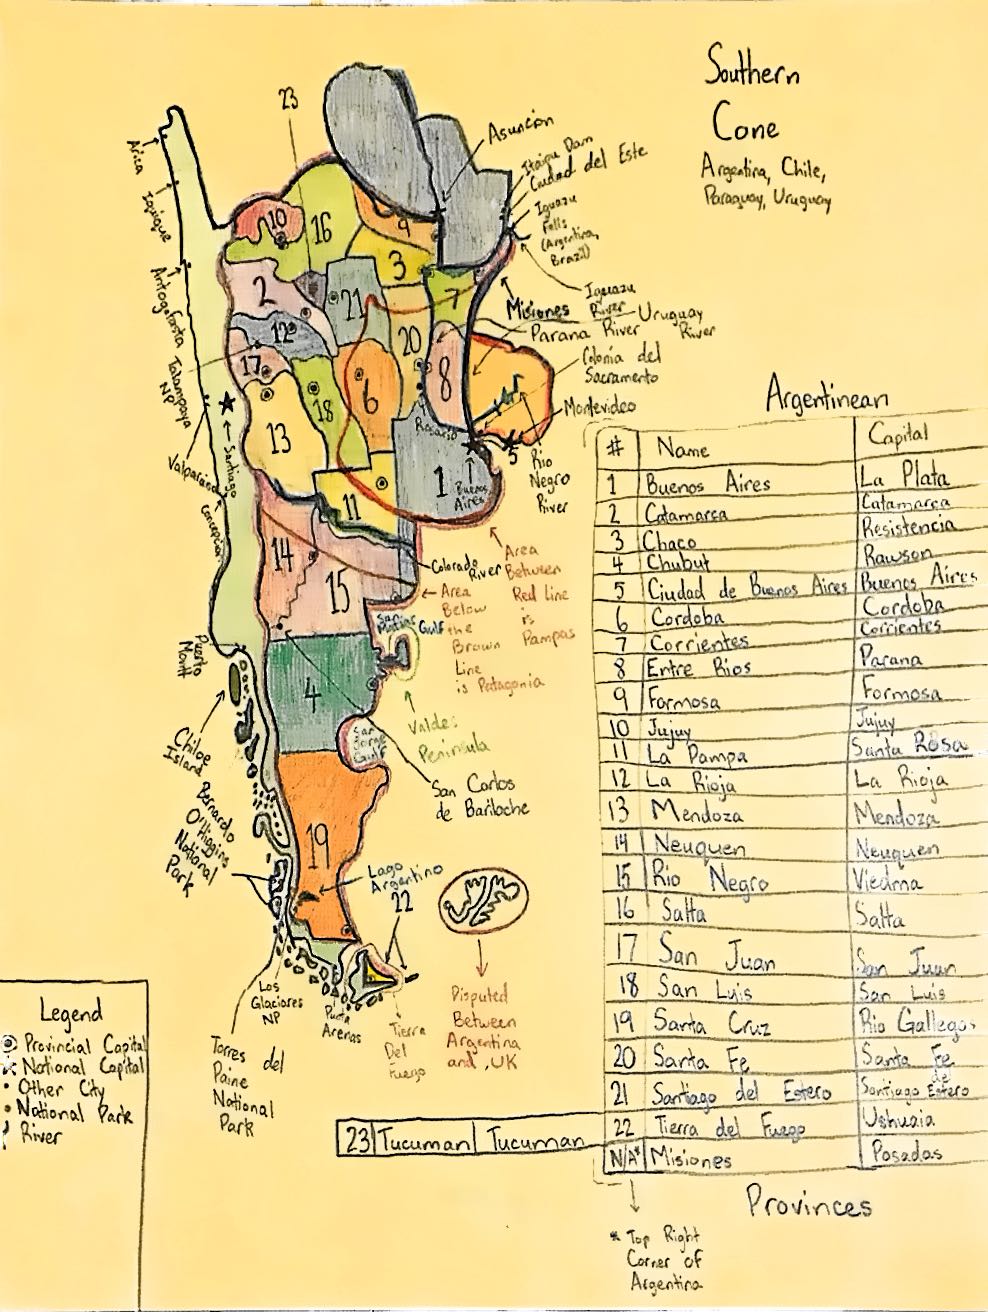 Southern
Cone
Argentina, Chile,
Paraguay, Uruguay
23
Asuncion
Itaipu Dam
Ciudad del Este
Iguazu
Falls
(Argentina,
Brazil)
Iguazu
River
Misiones
Uruguay
River
Parana River
Colonia del
Sacramento
Montevideo
Rio
Negro
River
Arica
Iquique
Antogafasta
Talampaya
NP
Valparaiso
Santiago
Concepcion
Puerto
Montt
10
16
9
3
2
21
7
12
20
17
6
8
18
13
Rosario
1
Buenos
Aires
5
11
14
15
Colorado
River
Area
Between
Red Line
is
Pampas
Area
Below
the
Brown
Line
is Patagonia
San
Matias
Gulf
4
Valdes
Peninsula
San
Jorge
Gulf
San Carlos
de Bariloche
Chiloe
Island
Bernardo
O'Higgins
National
Park
19
Lago
Argentino
22
Los
Glaciares
NP
Punta
Arenas
Tierra
Del
Fuego
Torres del
Paine
National
Park
Disputed
Between
Argentina
and UK
Legend
Provincial Capital
National Capital
Other City
National Park
River
Argentinean
# Name Capital
1 Buenos Aires La Plata
2 Catamarca Catamarca
3 Chaco Resistencia
4 Chubut Rawson
5 Ciudad de Buenos Aires Buenos Aires
6 Cordoba Cordoba
7 Corrientes Corrientes
8 Entre Rios Parana
9 Formosa Formosa
10 Jujuy Jujuy
11 La Pampa Santa Rosa
12 La Rioja La Rioja
13 Mendoza Mendoza
14 Neuquen Neuquen
15 Rio Negro Viedma
16 Salta Salta
17 San Juan San Juan
18 San Luis San Luis
19 Santa Cruz Rio Gallegos
20 Santa Fe Santa Fe
21 Santiago del Estero Santiago de Estero
22 Tierra del Fuego Ushuaia
23 Tucuman Tucuman
N/A* Misiones Posadas
Provinces
* Top Right
Corner of
Argentina